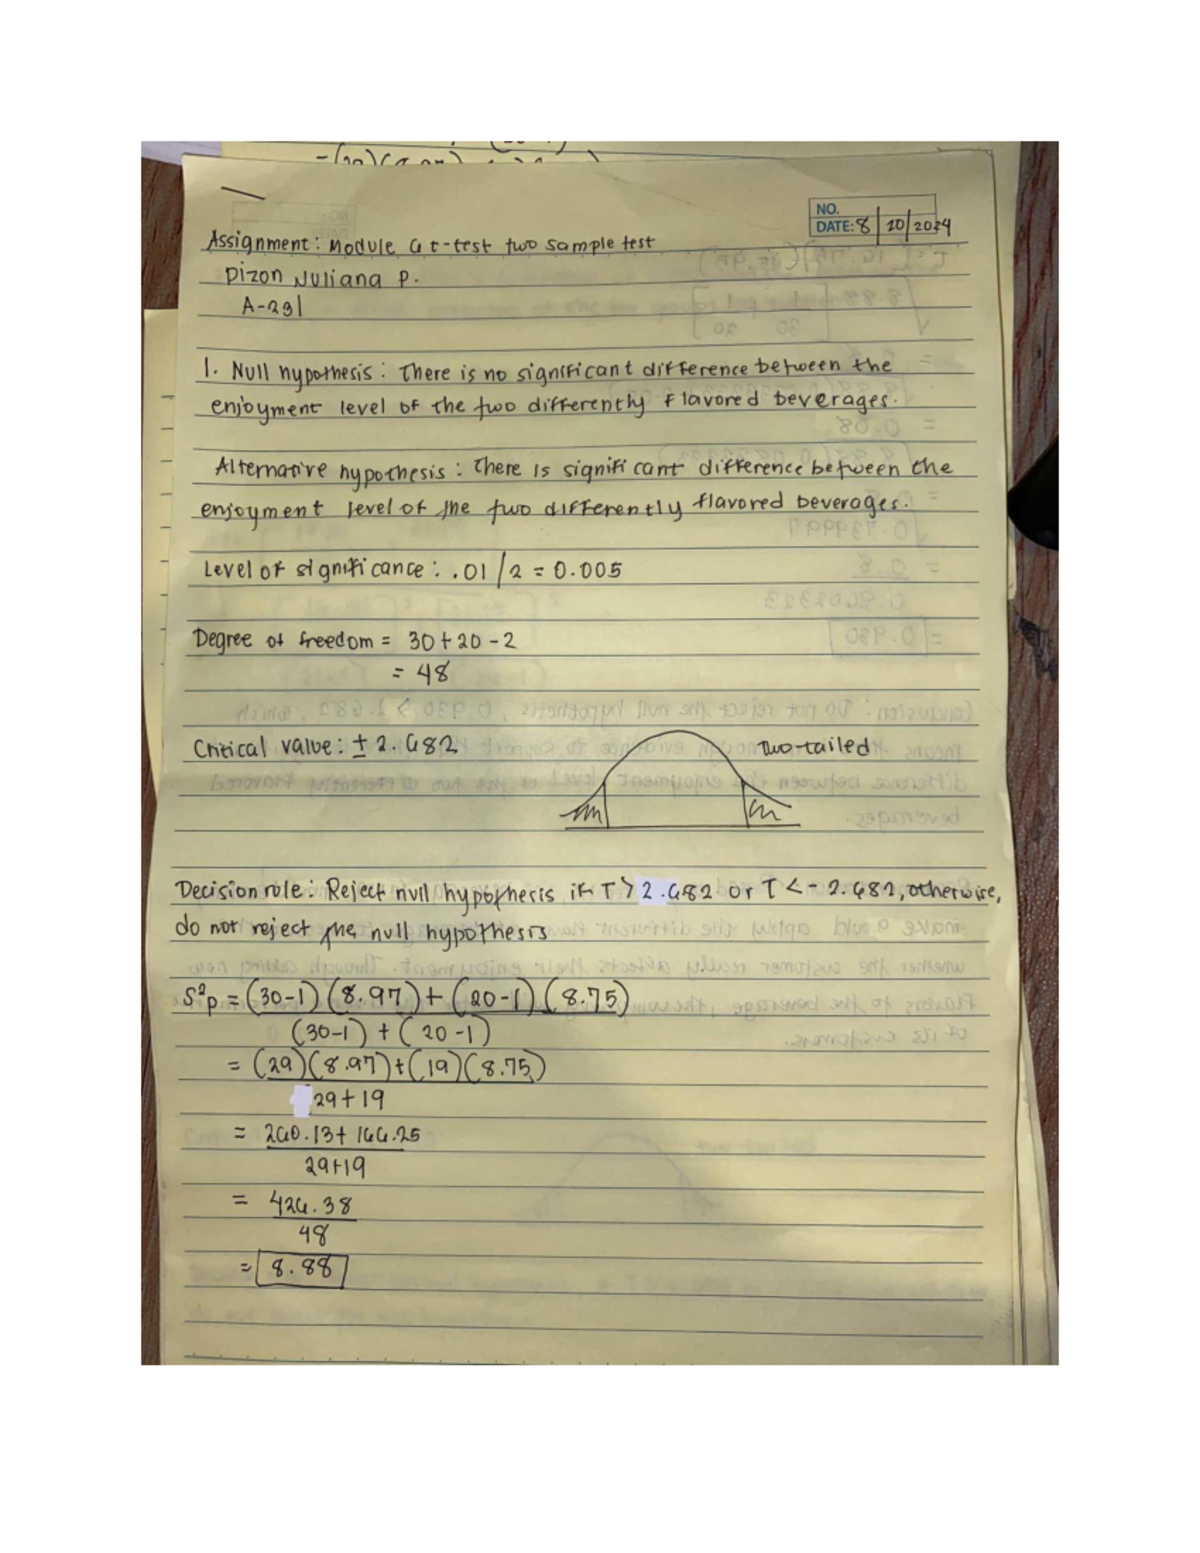 NO.
DATE: 8 | 20 | 2024
Assignment: Module 6 t-test two sample test
Dizon Juliana P.
A-231
1. Null hypothesis: There is no significant difference between the
enjoyment level of the two differently flavored beverages.
Alternative hypothesis: There is significant difference between the
enjoyment level of the two differently flavored beverages.
Level of significance: .01 / 2 = 0.005
Degree of freedom = 30 + 20 - 2
= 48
Critical value: ± 2.682
Two-tailed
Decision rule: Reject null hypothesis if T > 2.682 or T < - 2.682, otherwise,
do not reject the null hypothesis
S²p = (30-1) (8.97) + (20-1) (8.75)
(30-1) + (20-1)
= (29)(8.97) + (19)(8.75)
29 + 19
= 260.13 + 166.25
29+19
= 426.38
48
= 8.88